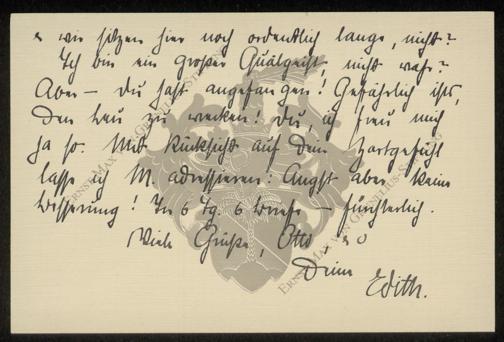 wir sitzen hier noch ordentlich lange, nicht?
Ich bin ein großer Quälgeist, nicht wahr?
Aber – Du hast angefangen! Gefährlich ists,
den Leu zu wecken! Du, ich freu mich
ja so. Mit Rücksicht auf Dein Zartgefühl
lasse ich M. adressieren: Angst aber keine
Besserung! In 6 Tg. 6 Briefe – fürchterlich.
Viele Grüße, Otto
Deine
Edith.
ERNST MAX VON GRUNELIUS-STIFTUNG
ERNST MAX VON GRUNELIUS-STIFTUNG